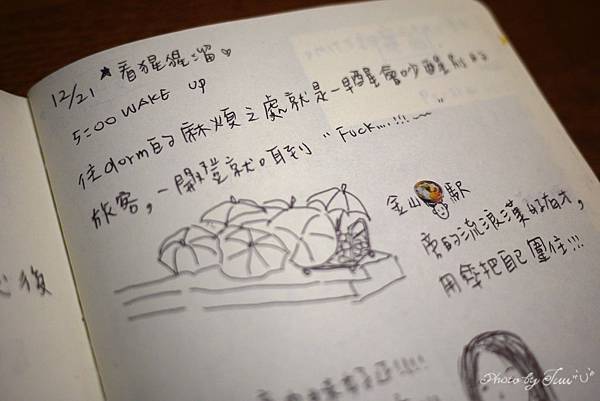 12/21 ★看猩猩溜♡
5:00 WAKE UP
住dorm的麻煩之處就是一早醒會吵醒別的
旅客,一開燈就口自到 "Fuck....!!!~~"
金山駅
旁的流浪漢好有才,
用傘把自己圍住!!!
後
Photo by Juu"U"